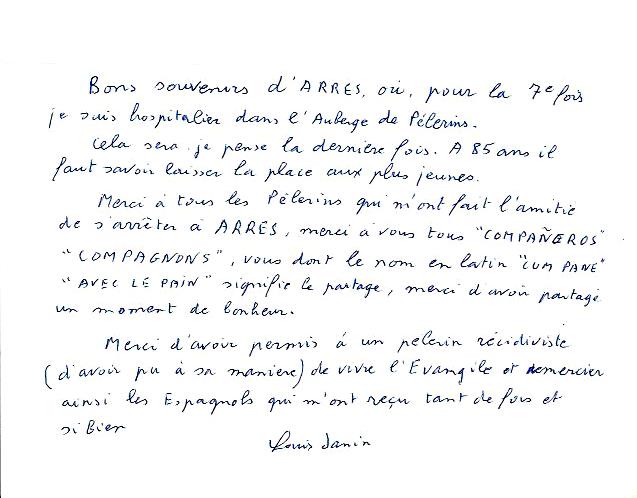 Bons souvenirs d'ARRES, où, pour la 7e fois
je suis hospitalier dans l'Auberge de Pélerins.
Cela sera je pense la dernière fois. A 85 ans il
faut savoir laisser la place aux plus jeunes.
Merci à tous les Pélerins qui m'ont fait l'amitie
de s'arrêter à ARRES, merci à vous tous "COMPAÑEROS"
"COMPAGNONS", vous dont le nom en latin "CUM PANE"
"AVEC LE PAIN" signifie le partage, merci d'avoir partagé
un moment de bonheur.
Merci d'avoir permis à un pelerin récidiviste
(d'avoir pu à sa maniere) de vivre l'Evangile et remercier
ainsi les Espagnols qui m'ont reçu tant de fois et
si Bien
Louis Janin